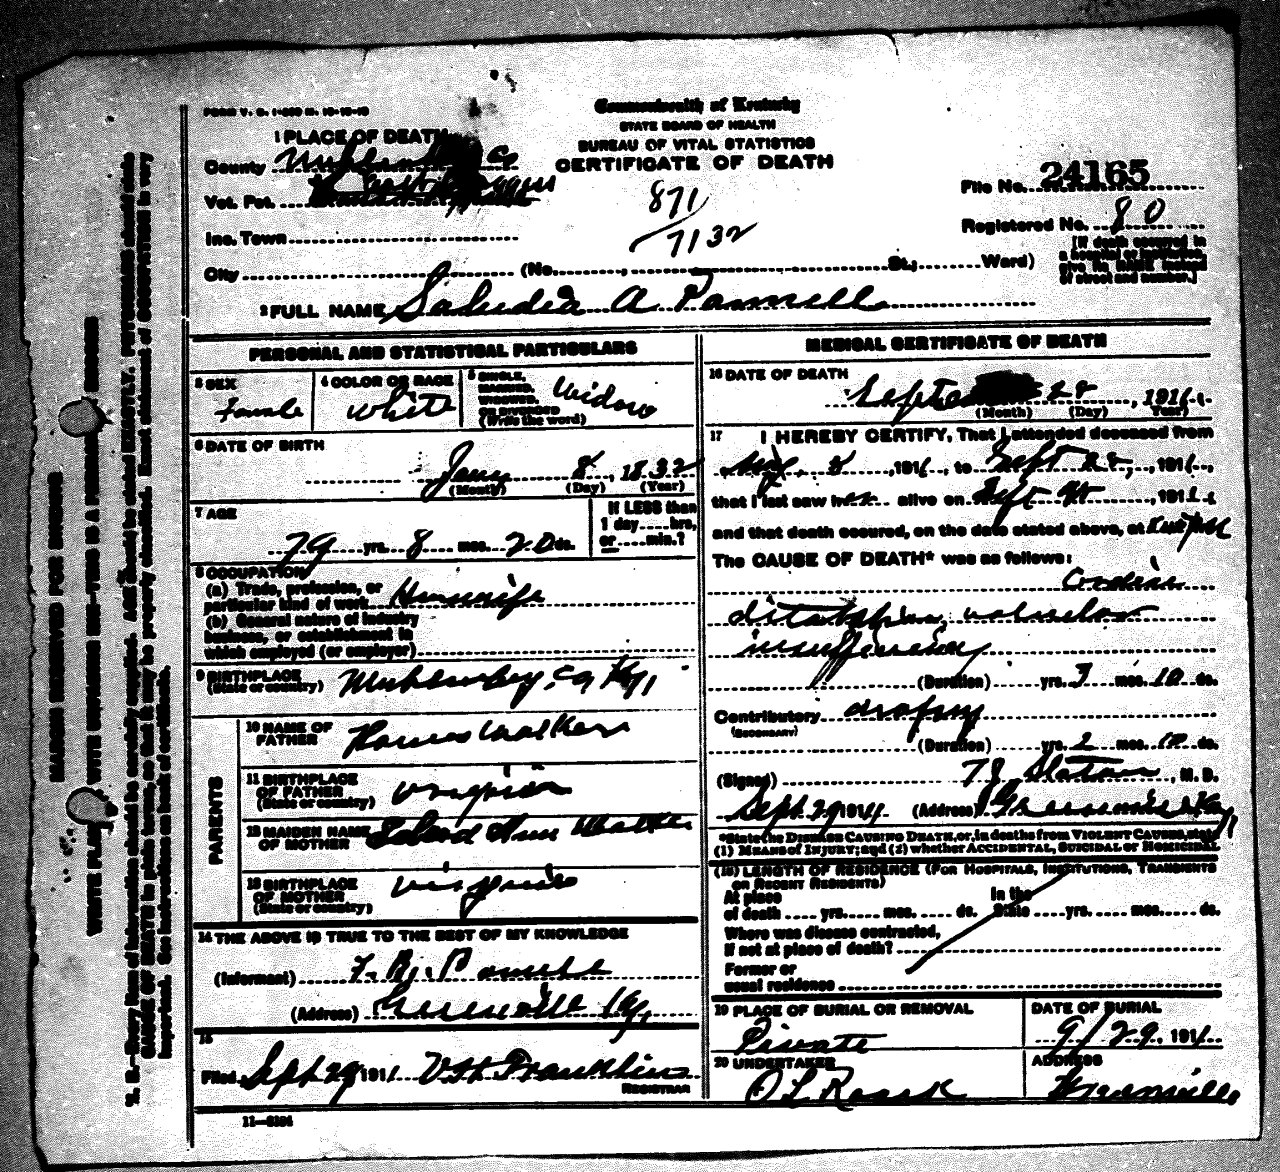 FORM V. S. 1-
Commonwealth of Kentucky
STATE BOARD OF HEALTH
BUREAU OF VITAL STATISTICS
CERTIFICATE OF DEATH
1 PLACE OF DEATH
County
Vot. Pct.
Inc. Town
City (No. , St.; Ward)
871
7132
File No. 24165
Registered No. 80
[If death occurred in
a hospital or institution,
give its NAME instead
of street and number.]
2 FULL NAME Saludia A Pannell
PERSONAL AND STATISTICAL PARTICULARS
3 SEX
Female
4 COLOR OR RACE
White
5 SINGLE,
MARRIED,
WIDOWED,
OR DIVORCED
(Write the word)
Widow
6 DATE OF BIRTH
Jany 8, 1832
(Month) (Day) (Year)
7 AGE
79 yrs. 8 mos. 20 ds.
If LESS than
1 day hrs.
or min.?
8 OCCUPATION
(a) Trade, profession, or
particular kind of work Housewife
(b) General nature of industry
business, or establishment in
which employed (or employer)
9 BIRTHPLACE
(State or country) Muhlenberg, Co Ky
PARENTS
10 NAME OF
FATHER Walker
11 BIRTHPLACE
OF FATHER
(State or country) Virginia
12 MAIDEN NAME
OF MOTHER Ann Walker
13 BIRTHPLACE
OF MOTHER
(State or country) Virginia
14 THE ABOVE IS TRUE TO THE BEST OF MY KNOWLEDGE
(Informant) Pannell
(Address) Greenville Ky.
15
Filed Sept 29 1911 Franklin
REGISTRAR
11-
MEDICAL CERTIFICATE OF DEATH
16 DATE OF DEATH
Sept 28, 1911
(Month) (Day) Year)
17 I HEREBY CERTIFY, That I attended deceased from
1911, to Sept 28, 1911,
that I last saw her alive on Sept 1911
and that death occured, on the date stated above, at
The CAUSE OF DEATH* was as follows:
Cardiac
dilatation, valvular
insufficiency
(Duration) yrs. 3 mos. 10 ds.
Contributory dropsy
(SECONDARY)
(Duration) yrs. 2 mos. 10 ds.
(Signed) Slaton, M. D.
Sept. 29 1911 (Address) Greenville Ky
*State the DISEASE CAUSING DEATH, or, in deaths from VIOLENT CAUSES, state
(1) MEANS of INJURY; and (2) whether ACCIDENTAL, SUICIDAL or HOMICIDAL
(18) LENGTH OF RESIDENCE (FOR HOSPITALS, INSTITUTIONS, TRANSIENTS
OR RECENT RESIDENTS)
At place
of death yrs. mos. ds.
In the
State yrs. mos. ds.
Where was disease contracted,
if not at place of death?
Former or
usual residence
19 PLACE OF BURIAL OR REMOVAL
Private
DATE OF BURIAL
9/29, 1911
20 UNDERTAKER
O L Roark
ADDRESS
Greenville
MARGIN RESERVED FOR BINDING
WRITE PLAINLY, WITH UNFADING INK—THIS IS A PERMANENT RECORD
N. B.—Every item of information should be carefully supplied. AGE should be stated EXACTLY. PHYSICIANS should state
CAUSE OF DEATH in plain terms, so that it may be properly classified. Exact statement of OCCUPATION is very
important. See instructions on back of certificate.